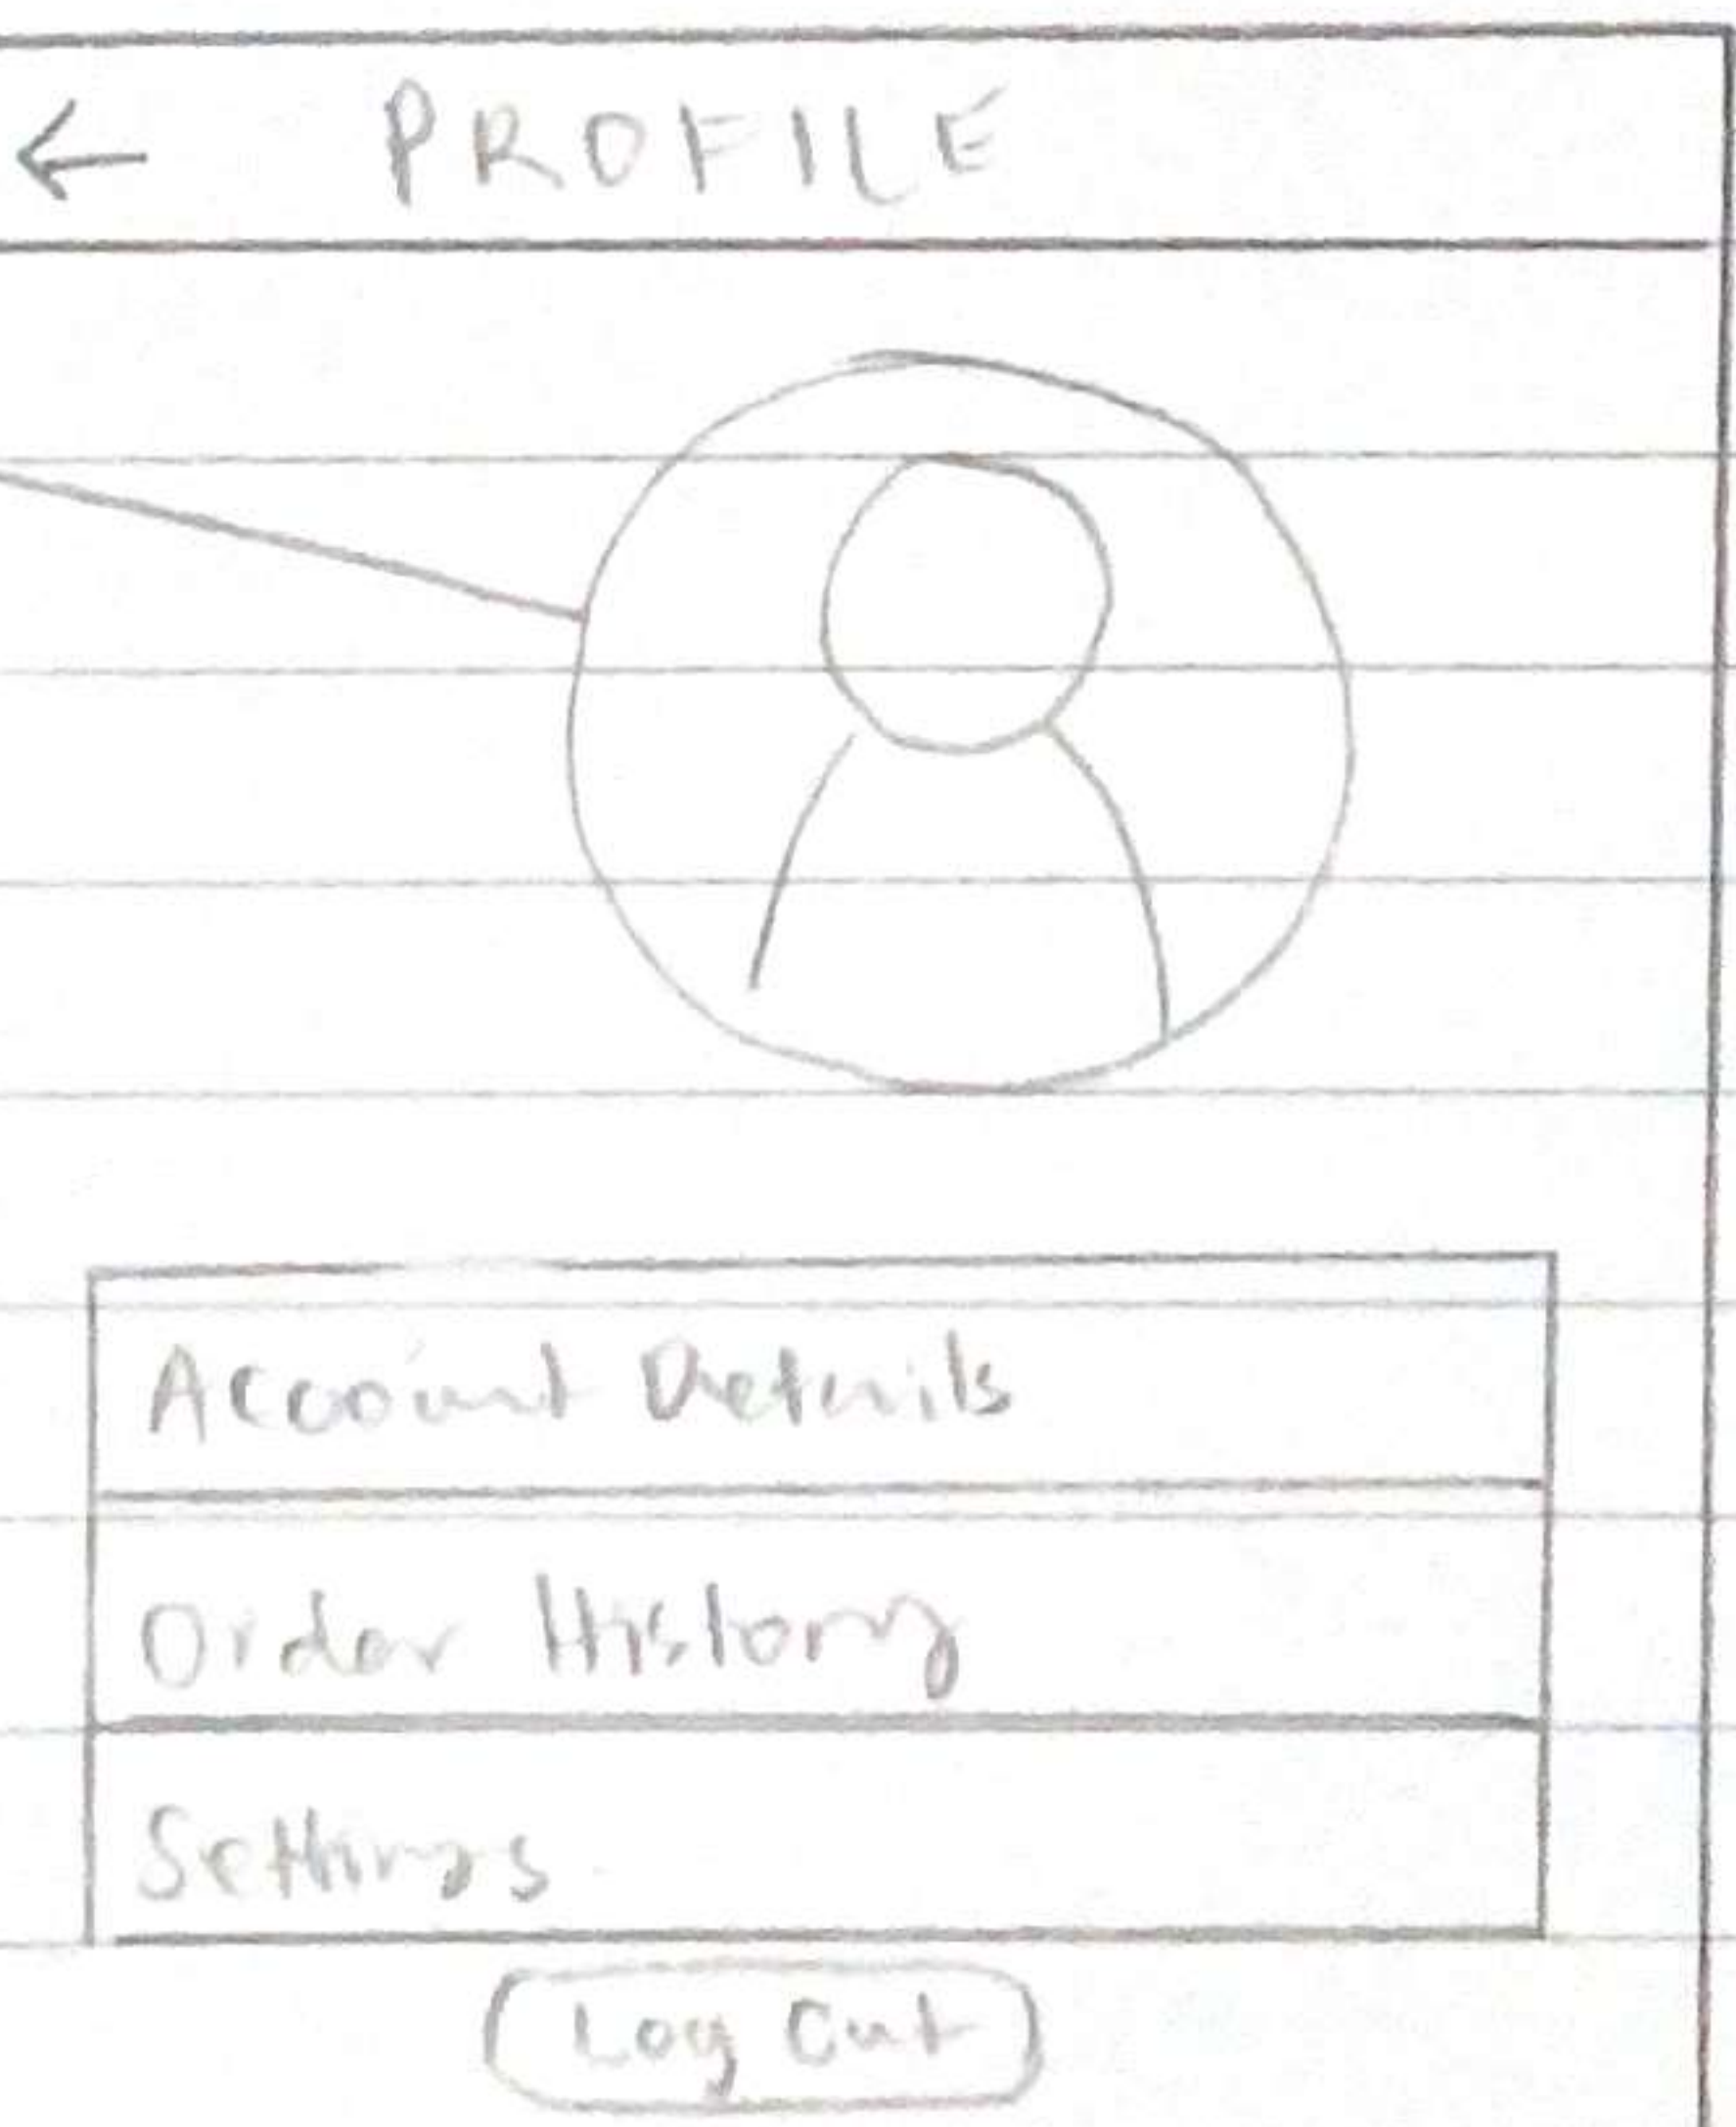 ← PROFILE
Account Details
Order History
Settings
Log Out